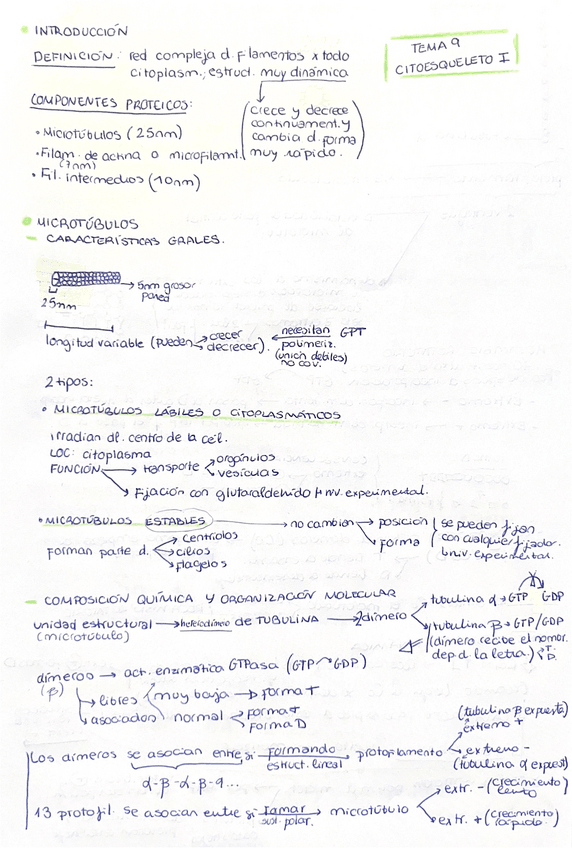 • INTRODUCCIÓN
TEMA 9
CITOESQUELETO I
DEFINICIÓN: red compleja d. filamentos x todo
citoplasm.; estruct. muy dinámica
crece y decrece
continuament. y
cambia d. forma
muy rápido.
COMPONENTES PROTEICOS:
• Microtúbulos (25nm)
• Filam. de actina o microfilamt.
(7nm)
• Fil. intermedios (10nm)
• MICROTÚBULOS
- CARACTERÍSTICAS GRALES.
→ 5nm grosor
pared
25nm
longitud variable (pueden → crecer
decrecer). necesitan GPT
polimeriz.
(unich débiles)
no cov.
2 tipos:
• MICROTÚBULOS LÁBILES O CITOPLASMÁTICOS
irradian dl. centro de la cél.
LOC: citoplasma
FUNCIÓN → transporte < orgánulos
vesículas
→ Fijación con glutaraldehído nv. experimental.
• MICROTÚBULOS ESTABLES → no cambian → posición
→ forma
se pueden fijar
con cualquier fijador.
niv. experimental.
forman parte d. → centriolos
→ cilios
→ flagelos
- COMPOSICIÓN QUÍMICA Y ORGANIZACIÓN MOLECULAR
unidad estructural → heterodímero de TUBULINA → dímero
(microtúbulo)
tubulina α → GTP GDP
tubulina β → GTP/GDP
(dímero recibe el nomor.
dep d. la letra) T.
D.
dímeros → act. enzimática GTPasa (GTP → GDP)
(β)
→ libres (muy baja → forma T
→ asociados normal < forma T
forma D
Los dímeros se asocian entre si formando
estruct. lineal protofilamento
α-β-α-β-α...
(tubulina β expuesta)
extremo +
extremo -
(tubulina α expuest)
13 protofil. se asocian entre si → microtúbulo
extr. - (crecimiento
lento)
extr. + (crecimiento
rápido.)